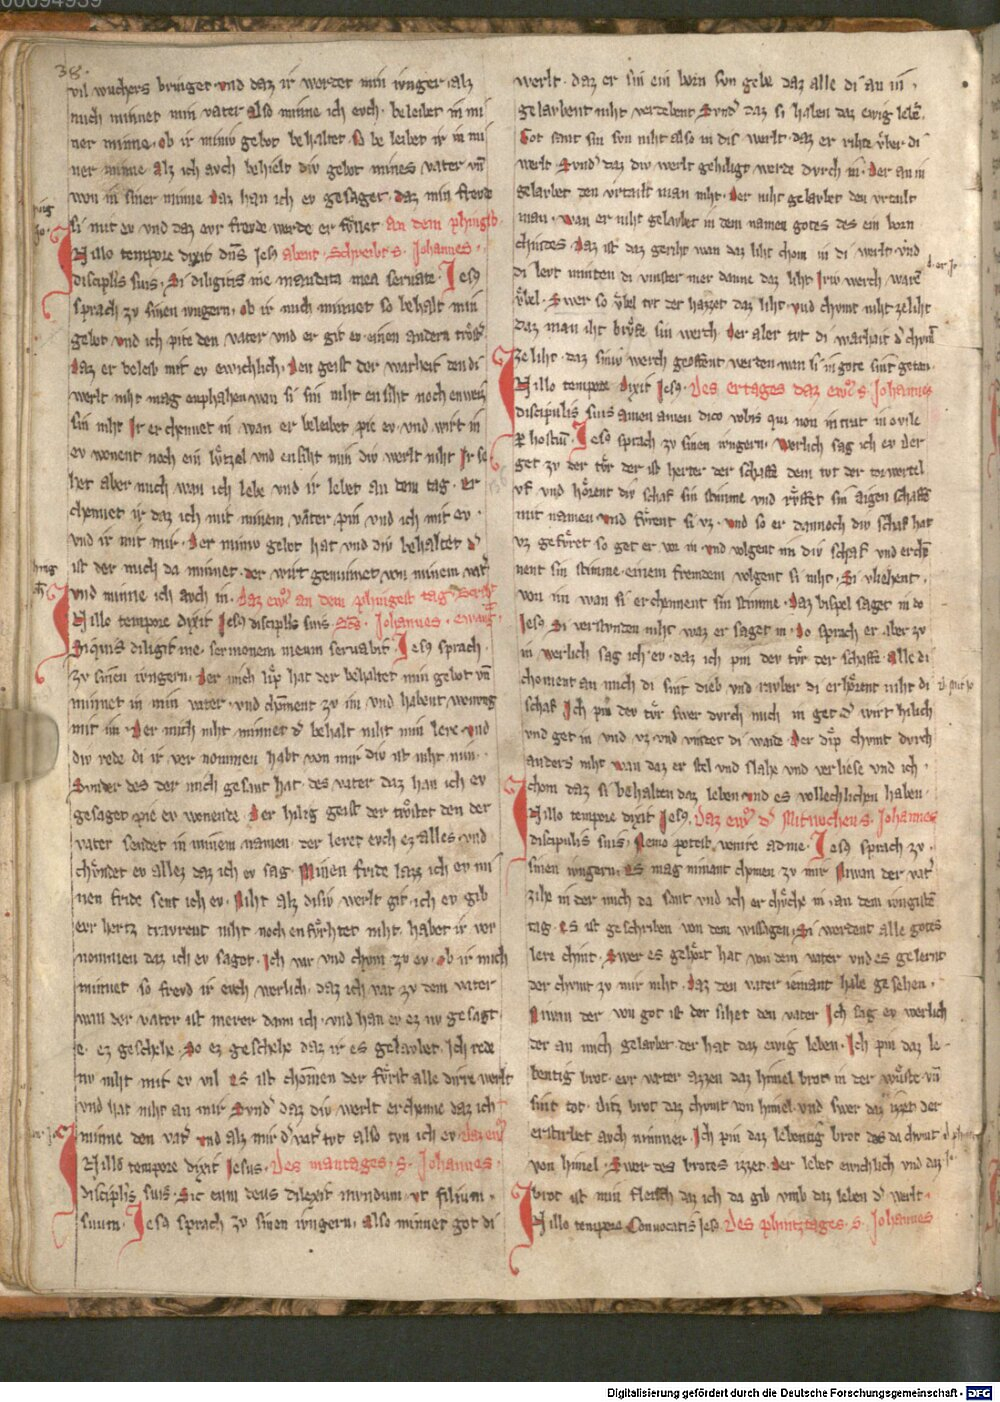 38.
vil wuchers bringet vnd daz ir werdet min ivnger. alz
mich minnet min vater also minne ich evch. beleibet in mi
ner minne. ob ir miniv gebot behaltet So beleibet ir in mi
ner minne alz ich avch behielt div gebot mines vater vn̄
won in siner minne Daz han ich ev gesaget. daz min frevde
si mit ev vnd daz evr frevde werde er fvllet an dem phingsb
N illo tempore dixit dn̄s Jesꝰ abent. Schreibt s. Johannes.
discipulis suis. Si diligitis me mandata mea seruate. Jesꝰ
sprach zv sinen ivngern. ob ir mich minnet so behalt min
gebot vnd ich pite den vater vnd er git ev einen andern trôst
Daz er beleib mit ev ewichlich. Den geist der warheit den di
werlt niht mag enphahen wan si sin niht ensiht noch enweiz
sin niht Ir er chennet in wan er beleibet pie ev. vnd wirt in
ev wonent noch ein lvtzel vnd ensiht min div werlt niht Ir se
het aber mich wan ich lebe vnd ir lebet an dem tag. er
chennet ir daz ich mit minem vater pin vnd ich mit ev.
vnd ir mit mir. Der miniv gebot hat vnd div behaltet d'
ist der mich da minnet. der wirt geminnet von minem vat'
vnd minne ich avch in. daz ew' an dem phingest tag
N illo tempore dixit Jesꝰ discipulis suis Johannes. ewang
Si quis diligit me. sermonem meum seruabit. Jesꝰ sprach.
zv sinen ivngern. Der mich lip hat der behaltet min gebot vn̄
minnet in min vater. vnd choment zv im vnd habent wonvng
mit im. Der mich niht minnet d' behalt niht min lere. vnd
div rede di ir ver nommen habt von mir div ist niht min.
Svnder des der mich gesant hat des vater daz han ich ev
gesaget pie ev wonende. Der hilig geist der trôstet den der
vater sendet in minem namen. der leret evch ez alles. vnd
chvndet ev allez daz ich ev sag. Minen fride lazz ich ev mi
nen fride sent ich ev. Niht alz disiv werlt git. ich ev gib
evr hertz travrent niht noch enfvrhtet niht. habet ir ver
nommen daz ich ev saget. Ich var vnd chom zv ev. ob ir mich
minnet so frevd ir evch werlich. daz ich var zv dem vater
wan der vater ist merer dann ich. vnd han ev ez nv gesagt
e. ez geschehe. So ez geschehe daz ir es gelavbet. Ich rede
nv niht mit ev vil Es ist chomen der fvrst alle dirre werlt
vnd hat niht an mir Svnd' daz div werlt erchenne daz ich
minne den vat' vnd alz mir d' vat' tvt also tvn ich ev. daz ew'
N illo tempore dixit Jesus. Des mantages. s. Johannes.
discipulis suis. Sic enim deus dilexit mundum. vt filium.
suum. Jesꝰ sprach zv sinen ivngern. also minnet got di
werlt. daz er sin ein born svn gebe daz alle di an in.
gelavbent niht verderbent Svnd' daz si haben daz ewig lebn̄.
Got sant sin svn niht also in dis werlt. daz er rihte vber di
werlt. Svnd' daz div werlt gehiligt werde dvrch in. Der an in
gelavbet den vrtailt man niht. Der niht gelavbet den vrtailt
man. wan er niht gelavbet in dem namen gotes des ein born
chindes. Daz ist daz geriht wan daz liht chom in di werlt. vnd
di levt minten di vinster mer danne daz liht. Iriv werch warn̄
vbel. Swer so vbel tvt der hazzet daz liht. vnd chvmt niht ze liht
daz man iht brvfe sin werch Der aber tvt di warhait d' chvmt
ze liht. daz siniv werch geoffent werden wan si in gote sint getan.
N illo tempore Dixit Jesꝰ. Des ertages daz ew' s. Johannes
discipulis suis amen amen dico vobis qui non intrat in ovile
ꝑ hostiū. Jesꝰ sprach zv sinen ivngern. werlich sag ich ev der
get zv der tvr der ist herter der schaffe dem tvt der torwertel
vf vnd hôrent div schaf sin stimme vnd rvffet sin aigen schaffe
mit namen vnd fvrent si vz. vnd so er dannoch div schaf hat
vz gefvret so get er vor in vnd volgent im div schaf vnd erchē
nent sin stimme. einem fremdem volgent si niht. Si vliehent.
von im wan si er chennent sin stimme. Daz bispel saget in do
Jesꝰ Si verstvnden niht waz er saget in. Do sprach er aber zv
in werlich sag ich ev. daz ich pin dev tvr der schaffe. alle di
choment an mich di sint dieb vnd ravber di erhôrent niht di
schaf Ich pin dev tvr swer dvrch mich in get d' wirt hilich
vnd get in vnd vz vnd vindet di waide Der dip chvmt dvrch
anders niht wan daz er stel vnd slahe vnd verliese vnd ich.
chom daz si behalten daz leben vnd es vollechlichen haben.
N illo tempore dixit Jesꝰ. Daz ew' d' Mitwochen s. Johannes
discipulis suis. Nemo potest. venire ad me. Jesꝰ sprach zv.
sinen ivngern. Es mag niemant chomen zv mir Niwan der vat'
zihe in der mich da sant vnd ich er chvche in. an dem ivngistē
tag. Es ist geschriben von dem wissagen. Si werdent alle gotes
lere chint. Swer es gehôrt hat von dem vater vnd es gelernt
der chvmt zv mir niht. Daz den vater iemant habe gesehen.
Niwan der von got ist der sihet den vater Ich sag ev werlich
der an mich gelavbet der hat daz ewig leben. Ich pin daz le-
bentig brot. evr vater azzen daz himel brot in der wvste vn̄
sint tot. ditz brot daz chvmt von himel. vnd swer daz izzet der
erstirbet avch nimmer. Ich pin daz lebentig brot des da chvmt
von himel. Swer des brotes izzet. der lebet ewichlich vnd daz
brot ist min fleisch daz ich da gib vmb daz leben d' werlt.
N illo tempore Convocatis Jesꝰ Des phintztages. s. Johannes
Digitalisierung gefördert durch die Deutsche Forschungsgemeinschaft - DFG